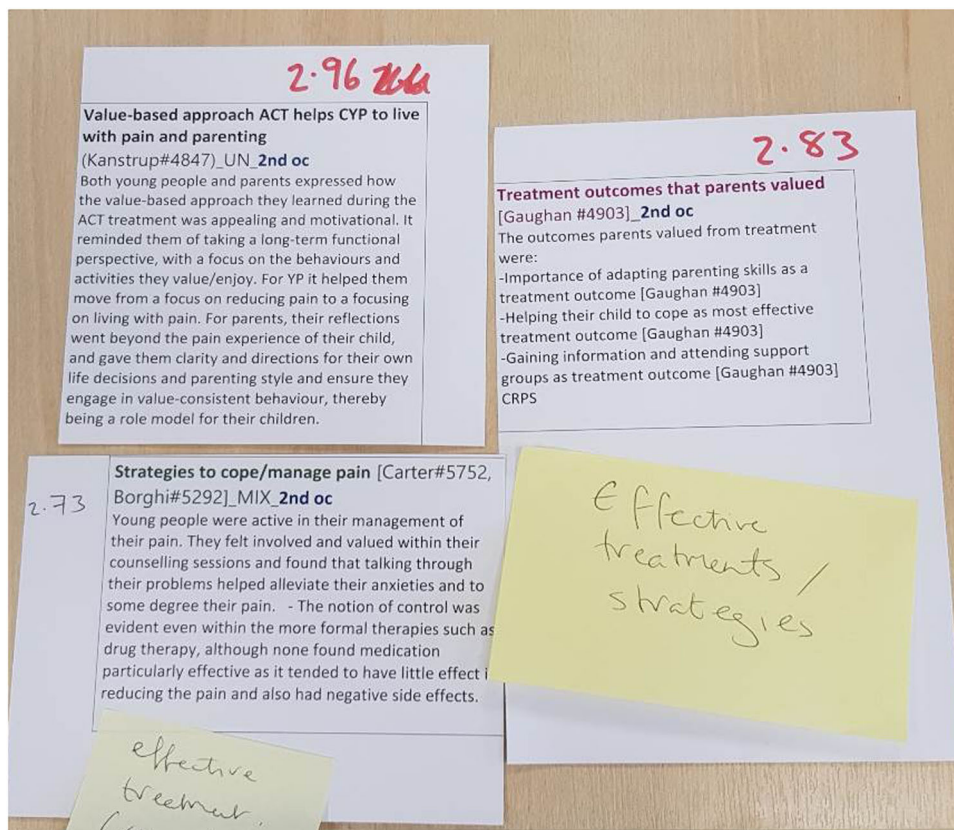 2.96
Value-based approach ACT helps CYP to live
with pain and parenting
(Kanstrup#4847)_UN_2nd oc
Both young people and parents expressed how
the value-based approach they learned during the
ACT treatment was appealing and motivational. It
reminded them of taking a long-term functional
perspective, with a focus on the behaviours and
activities they value/enjoy. For YP it helped them
move from a focus on reducing pain to a focusing
on living with pain. For parents, their reflections
went beyond the pain experience of their child,
and gave them clarity and directions for their own
life decisions and parenting style and ensure they
engage in value-consistent behaviour, thereby
being a role model for their children.
2.83
Treatment outcomes that parents valued
[Gaughan #4903]_2nd oc
The outcomes parents valued from treatment
were:
-Importance of adapting parenting skills as a
treatment outcome [Gaughan #4903]
-Helping their child to cope as most effective
treatment outcome [Gaughan #4903]
-Gaining information and attending support
groups as treatment outcome [Gaughan #4903]
CRPS
2.73
Strategies to cope/manage pain [Carter#5752,
Borghi#5292]_MIX_2nd oc
Young people were active in their management of
their pain. They felt involved and valued within their
counselling sessions and found that talking through
their problems helped alleviate their anxieties and to
some degree their pain. - The notion of control was
evident even within the more formal therapies such as
drug therapy, although none found medication
particularly effective as it tended to have little effect i
reducing the pain and also had negative side effects.
Effective
treatments /
strategies
effective
treatment